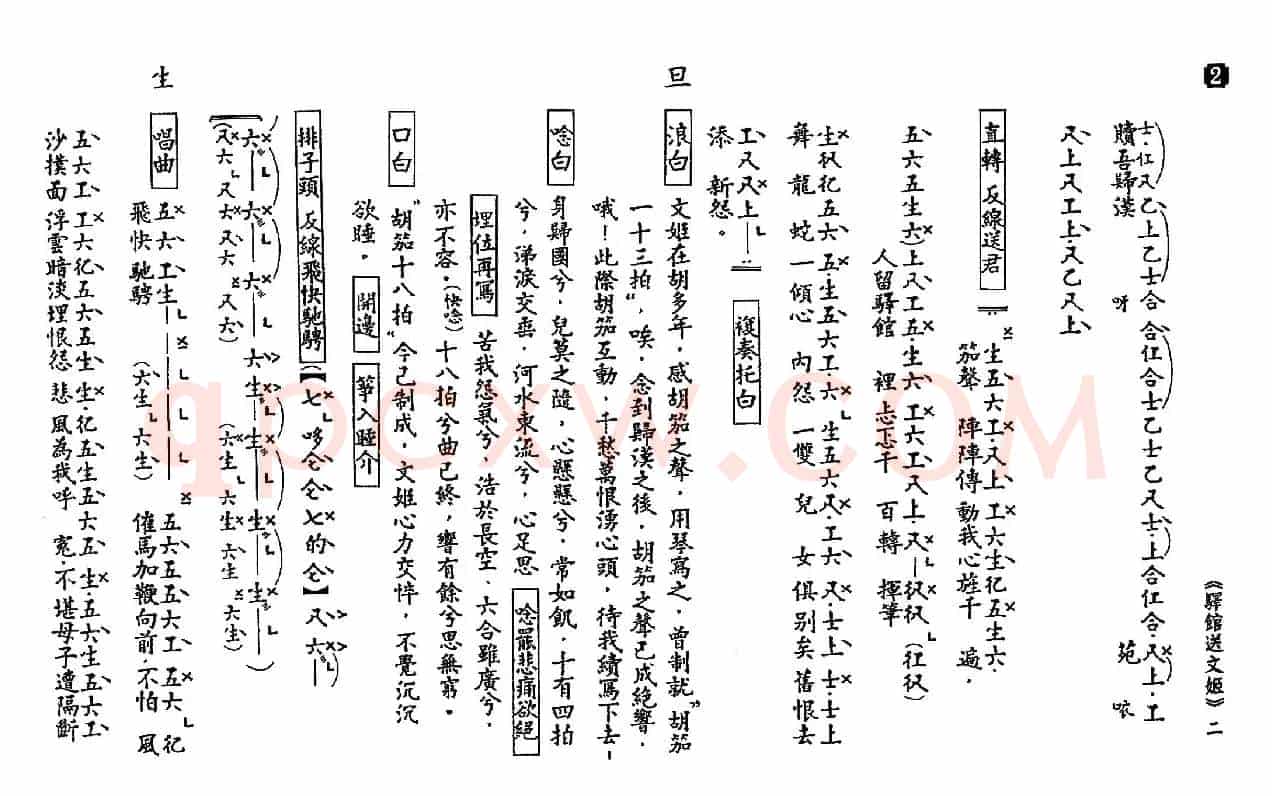 2
《驛館送文姬》二
士.仜 尺 乙 上 乙 士 合 合 仜 合 士 乙 士 乙 尺 士.上 合 仜 合.尺 上.工
贖吾歸漢 呀 苑 咴
尺 上 尺 工 上.尺 乙 尺 上
直轉 反線送君
生 五 六 工.尺 上 工 六 生 𠆾 五 生 六.
笳聲 陣陣傳動我心旌千 遍.
五 六 五 生 六)上 尺 工 五.生 六 工 六 工 尺 上.尺 — 伬 伬 (仜 伬)
人留驛館 裡 忐忑千 百轉 揮筆
生 伬 𠆾 五 六 五.生 五 六 工.六 生 五 六 尺.工 六 尺.士 上 士.士 上
舞 龍 蛇 一傾心 內怨 一雙 兒 女 俱別矣 舊恨去
工 尺 尺 上
添 新怨。
復奏托白
旦
浪白 文姬在胡多年，感胡笳之聲，用琴寫之，曾制就"胡笳
一十三拍"，唉，念到歸漢之後，胡笳之聲已成絕響，
哦！此際胡笳互動，千愁萬恨湧心頭，待我續寫下去！
唸白 身歸國兮，兒莫之隨，心懸懸兮，常如飢，十有四拍
兮，涕淚交垂，河水東流兮，心足思 唸罷悲痛欲絕
埋位再寫 苦我怨氣兮，浩於長空、六合雖廣兮，
亦不容。(快唸)十八拍兮曲已終，響有餘兮思無窮。
口白 "胡笳十八拍"今已制成，文姬心力交悴，不覺沉沉
欲睡。 開邊 箏入睡介
排子頭 反線飛快馳騁 (【七 哆 仑 仑 七 的 仑】 尺 六)
六 六 六 六 生 生 生 生)
(尺 六 尺 六 尺 六 尺 六) (六 生 六 生 六 生 六 生)
生
唱曲 五 六 工 生 (六 生 六 生) 五 六 五 五 六 工 五 六 𠆾
飛快 馳騁 催馬加鞭向前.不怕 風
五 六 工 工 六 𠆾 五 六 五 生 生.𠆾 五 生 五 六 五 生.五 六 生 五 六 工
沙撲面 浮雲暗淡埋恨怨 悲 風為我呼 冤.不堪母子遭隔斷
qpcxw.com